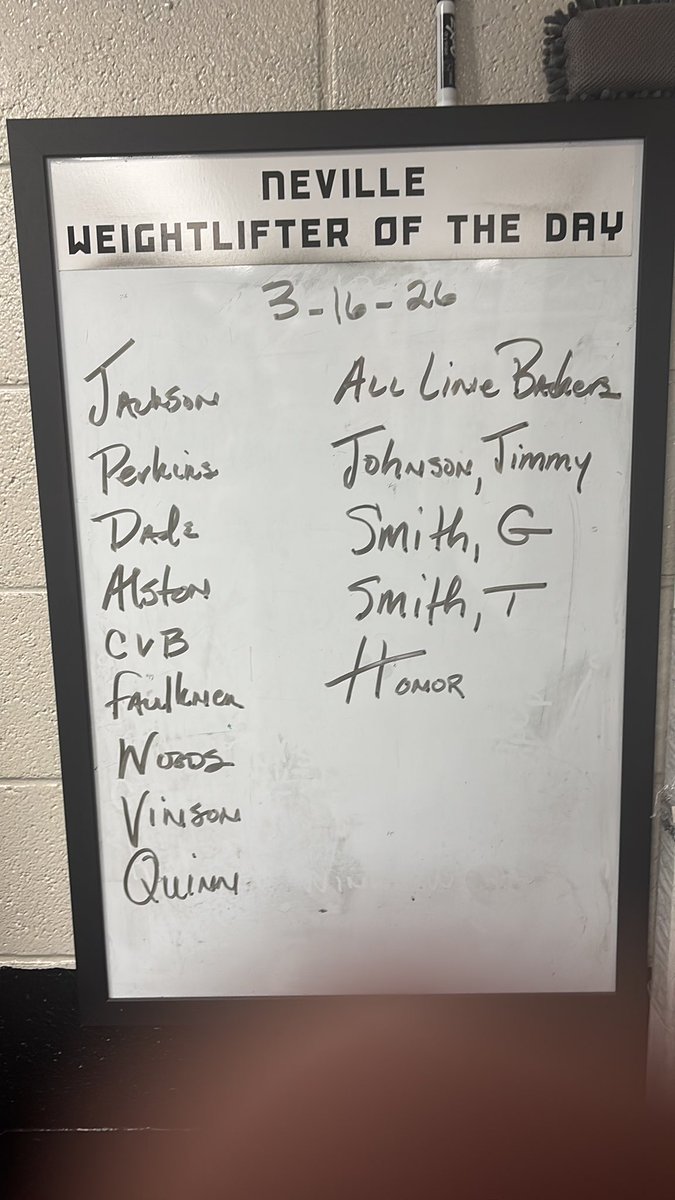 NEVILLE
WEIGHTLIFTER OF THE DAY
3-16-26
Jackson
Perkins
Dade
Alston
CVB
Faulkner
Woods
Vinson
Quinn
All Line Backers
Johnson, Jimmy
Smith, G
Smith, T
Honor